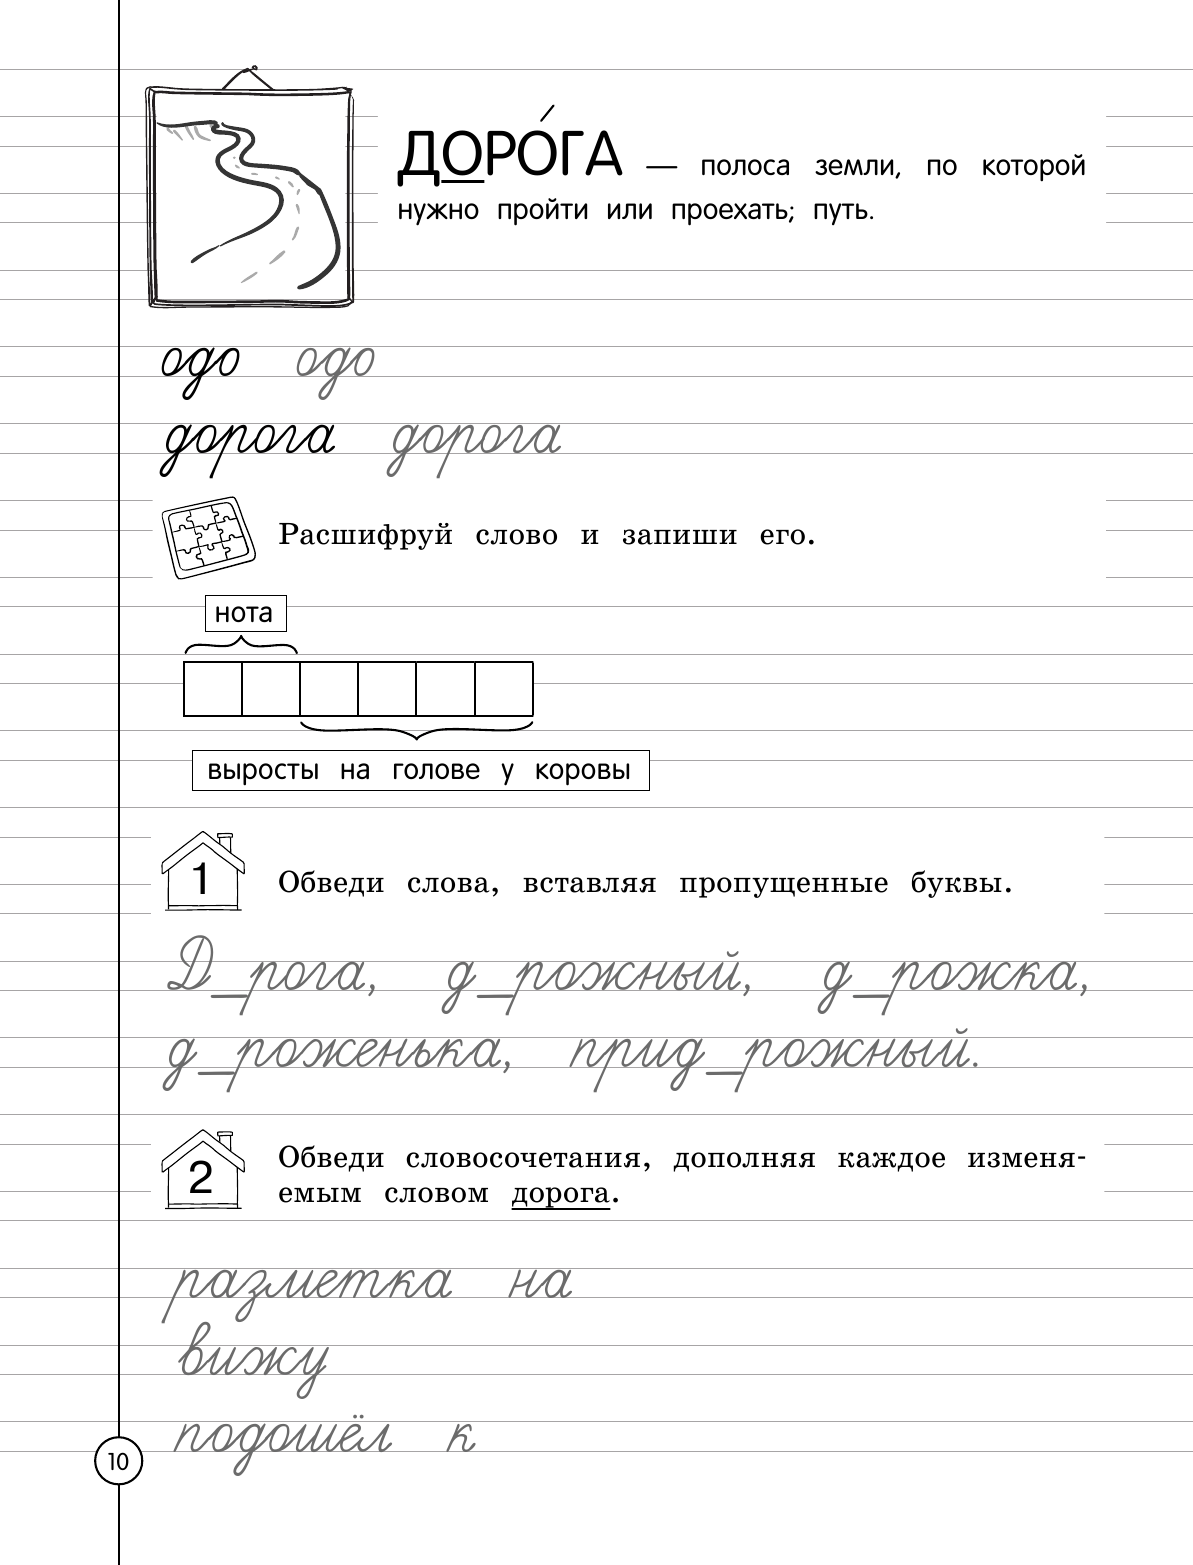 ДОРО́ГА — полоса земли, по которой
нужно пройти или проехать; путь.
одо одо
дорога дорога
Расшифруй слово и запиши его.
нота
выросты на голове у коровы
1 Обведи слова, вставляя пропущенные буквы.
Д_рога, д_рожный, д_рожка,
д_роженька, прид_рожный.
2 Обведи словосочетания, дополняя каждое изменя-
емым словом дорога.
разметка на
вижу
подошёл к
10